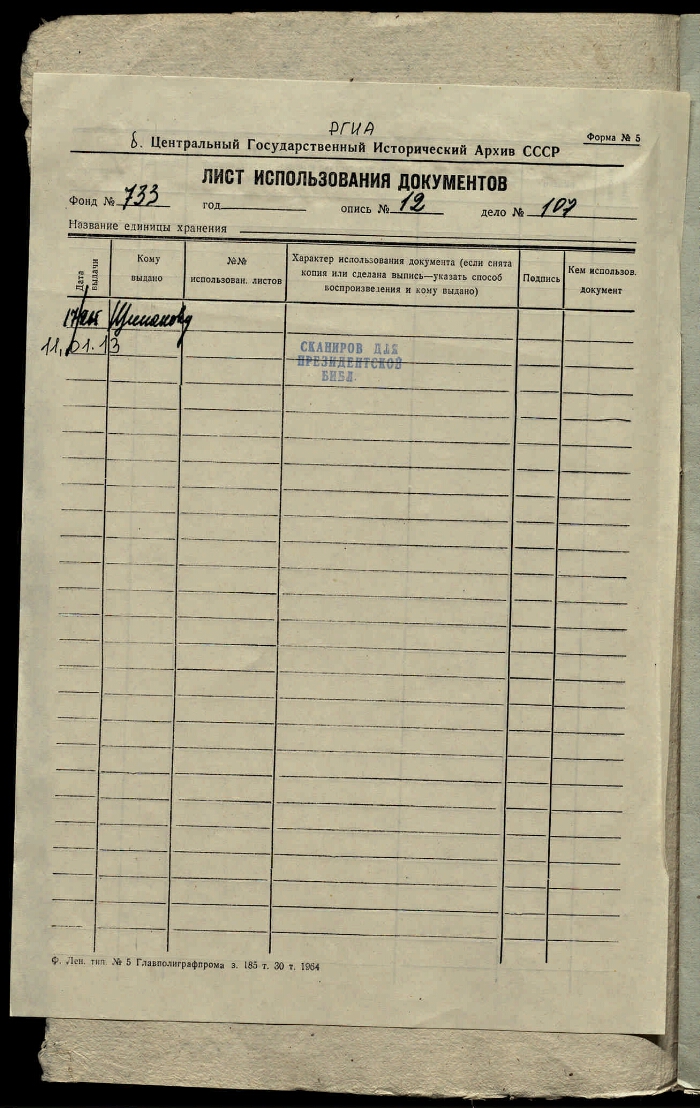 РГИА
Форма № 5
б. Центральный Государственный Исторический Архив СССР
ЛИСТ ИСПОЛЬЗОВАНИЯ ДОКУМЕНТОВ
Фонд № 733 год опись № 12 дело № 107
Название единицы хранения
Дата выдачи
Кому выдано
№№ использован. листов
Характер использования документа (если снята копия или сделана выпись—указать способ воспроизведения и кому выдано)
Подпись
Кем использов. документ
11.01.13
СКАНИРОВ ДЛЯ
ПРЕЗИДЕНТСКОЙ
БИБЛ.
Ф. Лен. тип. № 5 Главполиграфпрома з. 185 т. 30 т. 1964